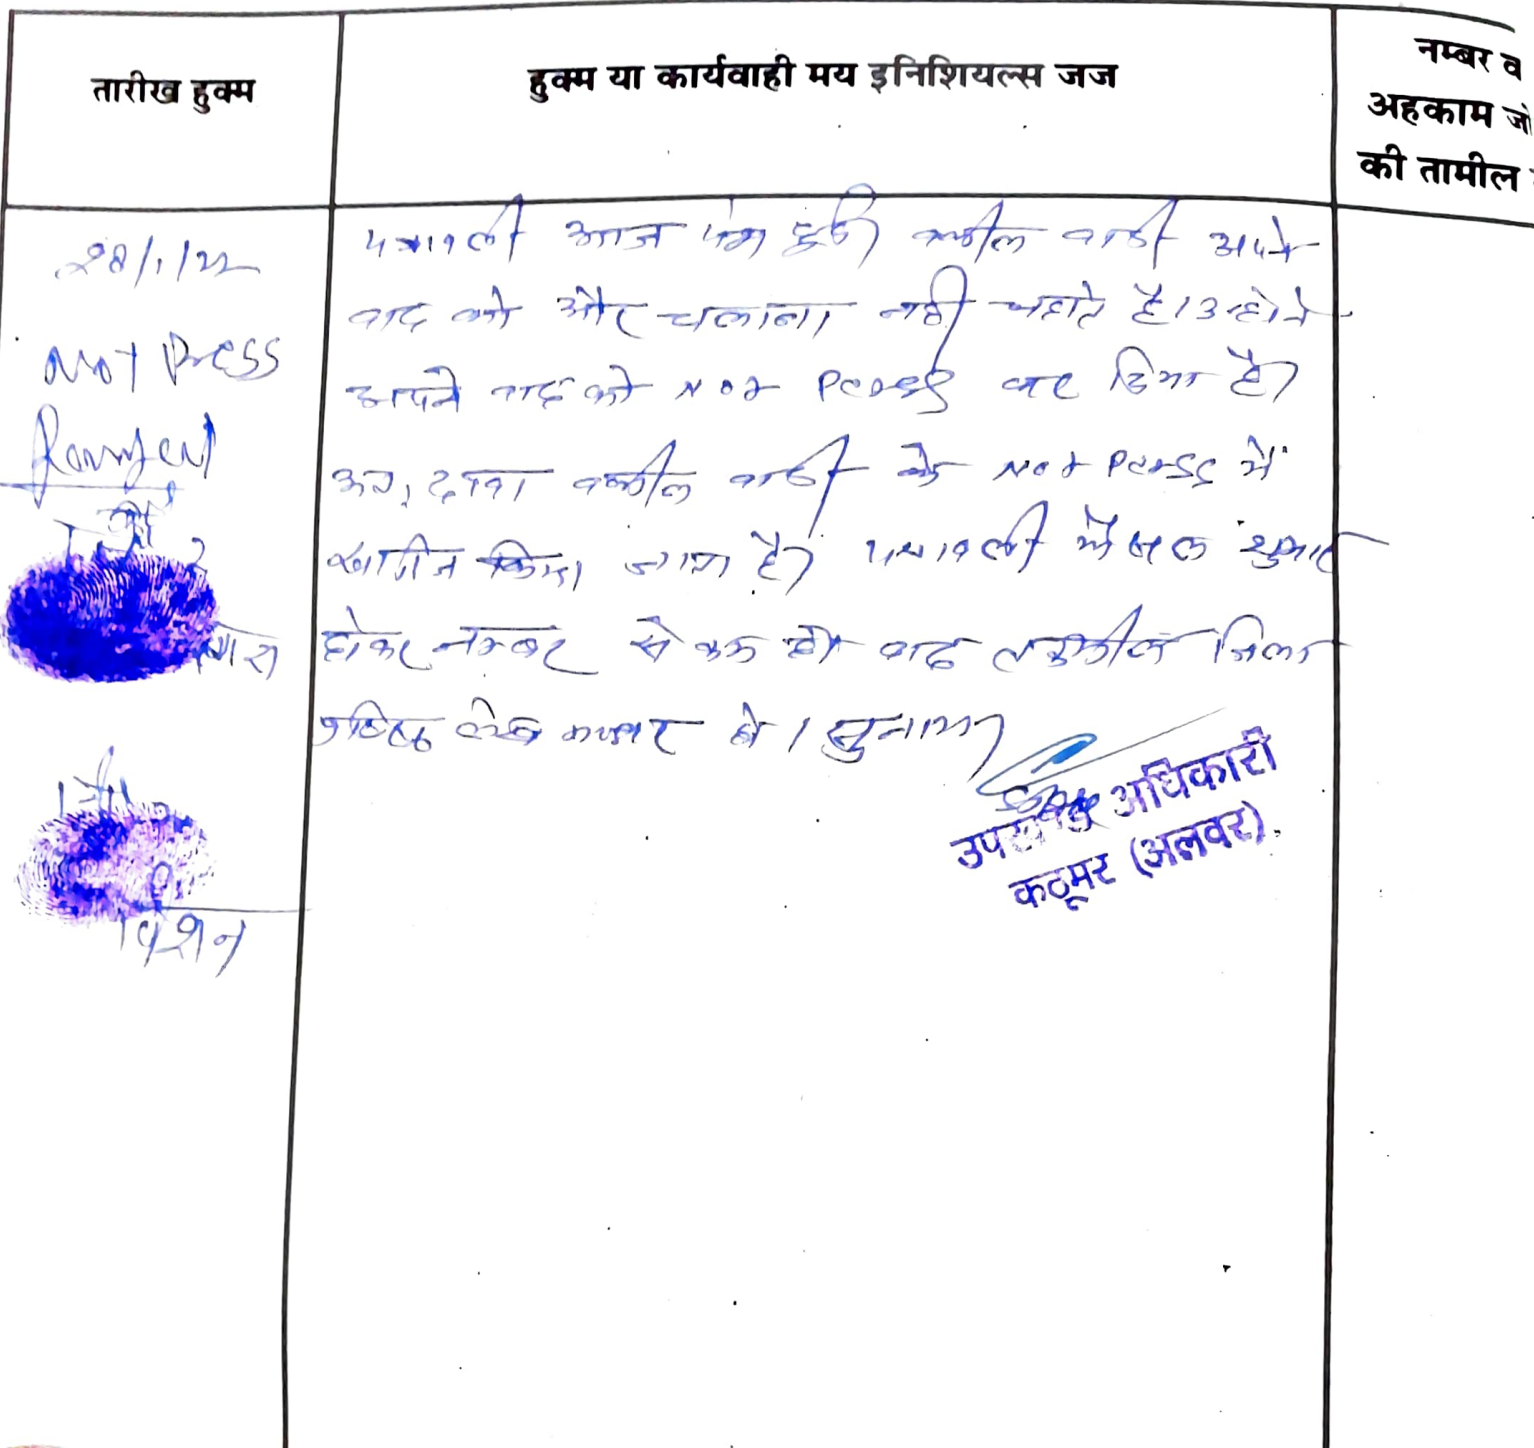 तारीख हुक्म
हुक्म या कार्यवाही मय इनिशियल्स जज
नम्बर व
अहकाम जो
की तामील
28/1/22
Not Press
पत्रावली आज पेश हुई। वकील वादी अपने
वाद को और चलाना नही चहाते है। उन्होने
अपने वाद को Not Press कर दिया है।
अतः दावा वकील वादी के Not Press में
खारीज किया जाता है। पत्रावली फैसल शुमार
होकर नम्बर से कम हो वाद तकमील
दाखिल दफ्तर हो। सुनाया
उपखण्ड अधिकारी
कठूमर (अलवर)